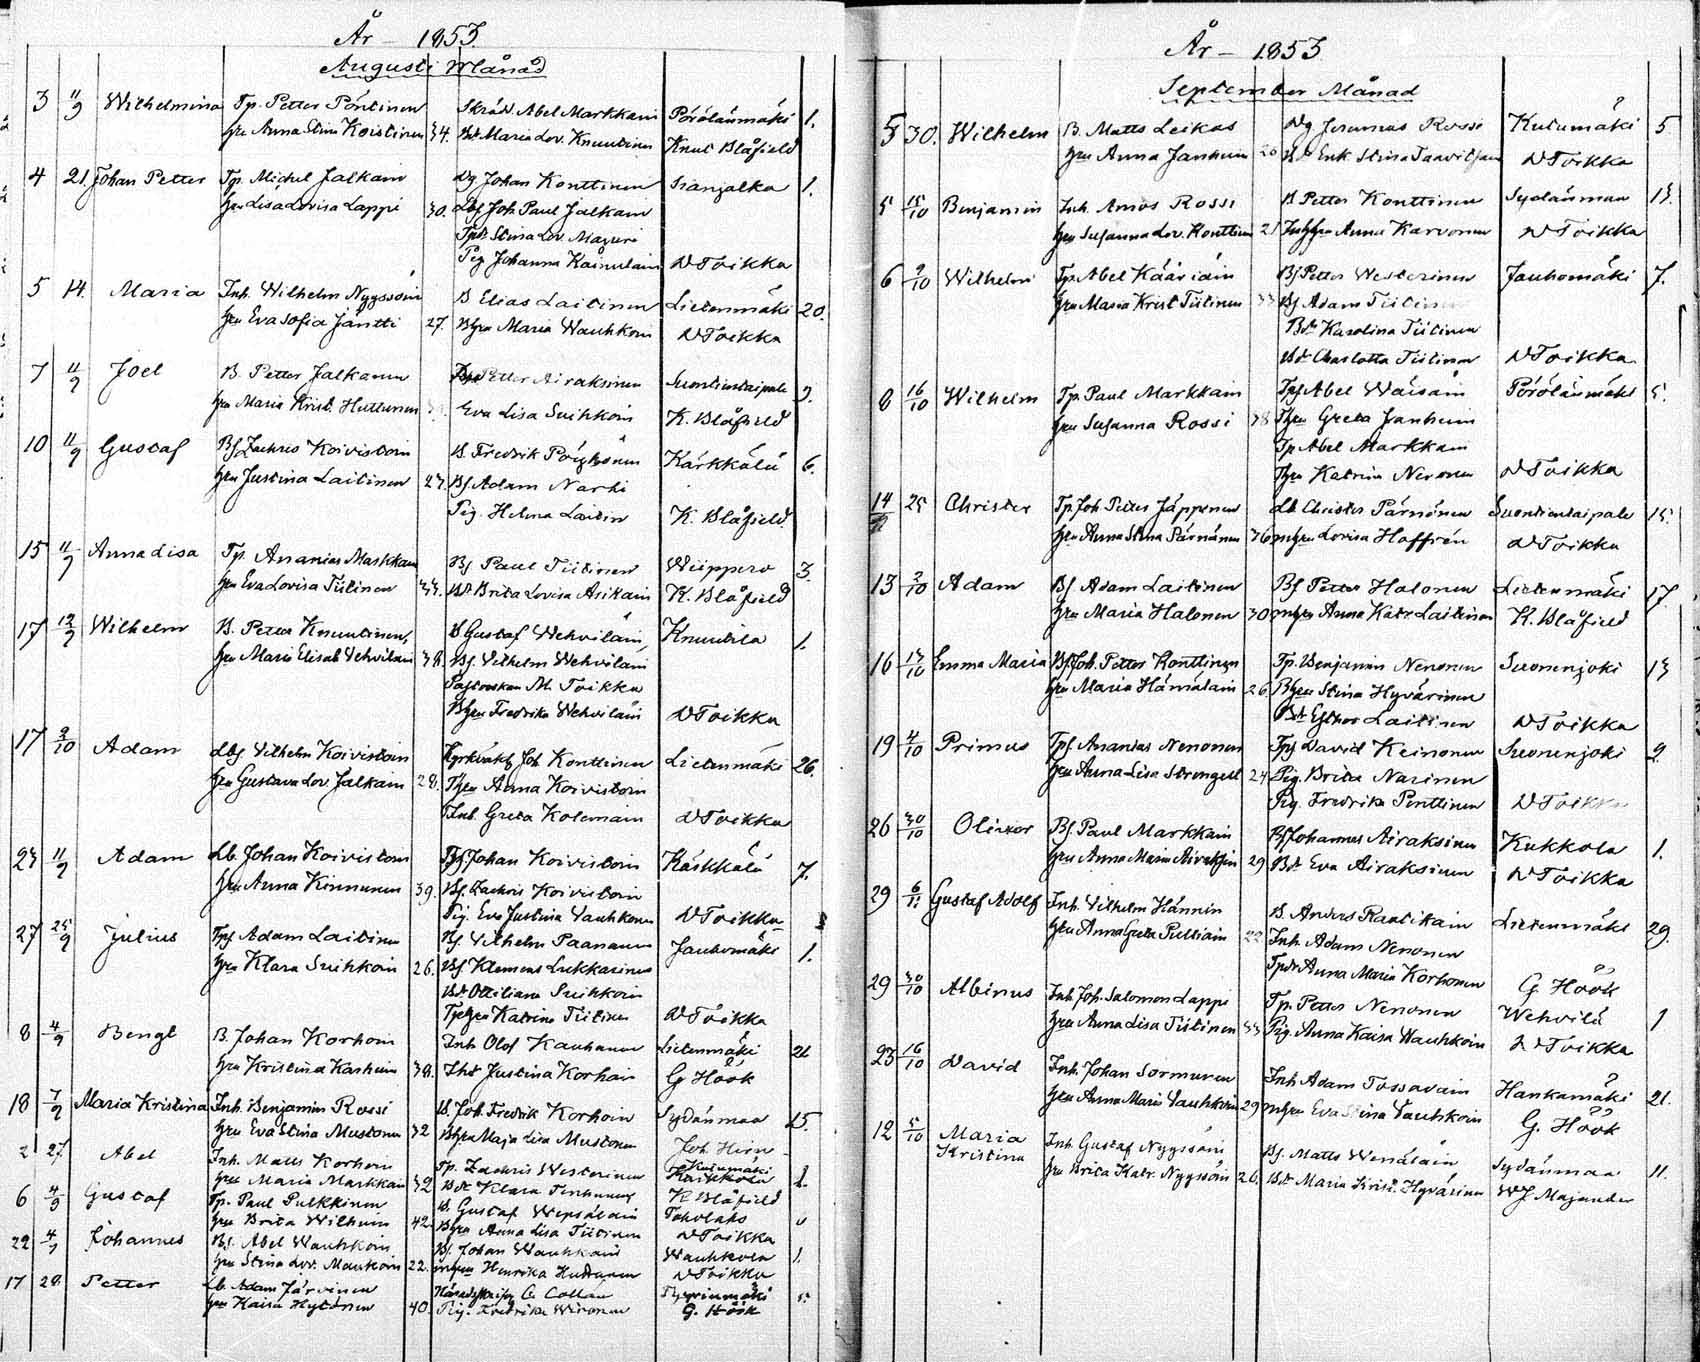 År - 1853.
Augusti Månad
3 11/9 Wilhelmina Tp. Petter Pöntinen Skrädd. Abel Markkain Pörölänmäki 1.
hu Anna Stina Koistinen 34. Bd. Maria Lov. Knuutinen Knut Blåfield
4 21. Johan Petter Tp. Michel Jalkain Dg Johan Konttinen Sianjalka 1.
hu Lisa Lovisa Lappi 30. Lbf Joh. Paul Jalkain
Stina Lov.
Pig Johanna Kainulain D Toikka
5 14. Maria Inh. Wilhelm Nyyssöin B Elias Laitinen Lietenmäki 20.
hu Eva Sofia Jäntti 27. Bhu Maria Wauhkoin D Toikka
7 11/9 Joel B. Petter Jalkanen Petter Airaksinen Suontientaipale 9.
hu Maria Krist. Huttunen Eva Lisa Suihkoin K. Blåfield
10 11/9 Gustaf Bf Zachris Koivistoin B. Fredrik Kärkkälä 6.
hu Justina Laitinen 27. Bf Adam Narhi
Pig. Helena Laitin K. Blåfield
15 11/9 Anna Lisa Tp. Ananias Markkain Bf Paul Tiitinen Wiippero 3.
hu Eva Lovisa Tiitinen 33. Bd Brita Lovisa Asikain K. Blåfield
17 12/9 Wilhelm B. Petter Knuutinen, B Gustaf Wehviläin Knuutila 1.
hu Maria Elisab Vehviläin 38. Bf. Vilhelm Wehviläin
M. Toikka
Bhu Fredrika Wehviläin D Toikka
17 2/10 Adam Lbf Vilhelm Koivistoin Joh Konttinen Lietenmäki 26.
hu Gustava Lov. Jalkain 28. Anna Koivistoin
Inh. Greta Kolemain D Toikka
23 11/9 Adam Lb. Johan Koivistoin Johan Koivistoin Kärkkälä 7.
hu Anna Kinnunen 39. Bf. Zachris Koivistoin
Pig. Eva Justina Vauhkonen D Toikka
27 25/9 Julius Tpf Adam Laitinen Bf. Vilhelm Paananen Jauhomäki 1.
hu Klara Suihkoin 26. Bf Klemens Lukkarinen
Bd. Ottiliana Suihkoin
Tphu Katrina Tiitinen D Toikka
8 4/9 Bengt B. Johan Korhoin Inh Olof Kauhanen Lietenmäki 21
hu Kristina Karhuin 38. Justina Korhoin G Höök
18 7/9 Maria Kristina Inh. Benjamin Rossi B. Joh. Fredrik Korhoin Sydänmaa 15.
hu Eva Stina Mustonen 32 Bhu Maja Lisa Mustonen Joh Hirn
2 27 Abel Inh. Matts Korhoin Tp. Zachris Westerinen Kutumäki
hu Maria Markkain 32 Bd Klara K Blåfield
6 4/9 Gustaf Tp. Paul Pulkkinen B. Gustaf Wepsäläin Toholahs
hu Brita Wilhuin 42. Bhu Anna Lisa Tiitinen D Toikka
22 Johannes Bf. Abel Wauhkoin Bf. Johan Wauhkoin Wauhkola 1.
hu Stina Lov. 22. Henrika Huttunen D Toikka
17 28. Petter Lb. Adam Järvinen C. Collan
hu Kaisa Hytönen 40. Pig. Fredrika Wironen G. Höök
År - 1853
September Månad
5 30. Wilhelm B. Matts Leikas Dg Jeremias Rossi Kutumäki 5
hu Anna Janhuin 26 Stina D Toikka
5 15/10 Benjamin Inh. Amos Rossi B Petter Konttinen Sydänmaa 13.
hu Susanna Lov. Konttinen 21 Inhhu Anna Karvonen D Toikka
6 9/10 Wilhelm Tp. Abel Kääriäin Bf Petter Westerinen Jauhomäki 7.
hu Maria Krist Tiitinen 33 Bf Adam Tiitinen
Bd Karolina Tiitinen
Bd Charlotta Tiitinen D Toikka
8 16/10 Wilhelm Tp. Paul Markkain Tpf Abel Wäisäin Pörölänmäki 5.
hu Susanna Rossi 38 Greta Janhuin
Tp Abel Markkain
Katrin Nenonen D Toikka
14 25 Christer Tp. Joh Petter Jäppinen Lb Christer Pärnänen Suontientaipale 15.
hu Anna Stina Pärnänen 36 Lovisa Hoffrén D Toikka
13 2/10 Adam Bf. Adam Laitinen Bf Petter Halonen Lietenmäki 17
hu Maria Halonen 30 Anna Katr. Laitinen K. Blåfield
16 13/10 Emma Maria Bf Joh. Petter Konttinen Tp. Benjamin Nenonen Suonenjoki 13
hu Maria Hämäläin 26 Bhu Stina Hyvärinen
Bd Esther Laitinen D Toikka
19 4/10 Primus Tpf. Ananias Nenonen Tpf David Keinonen Suonenjoki 9.
hu Anna Lisa Strengell 24 Pig. Brita Narinen
Pig. Fredrika Penttinen D Toikka
26 30/10 Olivier Bf. Paul Markkain Bf Johannes Airaksinen Kukkola 1.
hu Anna Maria Airaksin 29 Bd Eva Airaksinen D Toikka
29 6/11 Gustaf Adolf Inh. Vilhelm Hännin B. Anders Rautikain Lietenmäki 29.
hu Anna Greta Pulliain 22 Inh Adam Nenonen
Anna Maria Korhonen G. Höök
29 30/10 Albinus Inh. Joh. Salomon Lappi Tp. Petter Nenonen Wehvilä 1
hu Anna Lisa Tiitinen 33 Pig. Anna Kaisa Wauhkoin D Toikka
23 16/10 David Inh. Johan Sormunen Inh. Adam Tossavain Hankamäki 21.
hu Anna Maria Vauhkoin 29 Eva Stina Vauhkoin G. Höök
12 5/10 Maria Kristina Inh. Gustaf Nyyssöin Bf. Matts Wenäläin Sydänmaa 11.
hu Brita Katr. Nyyssöin 26. Bd Maria Krist. Hyvärinen W J Majander